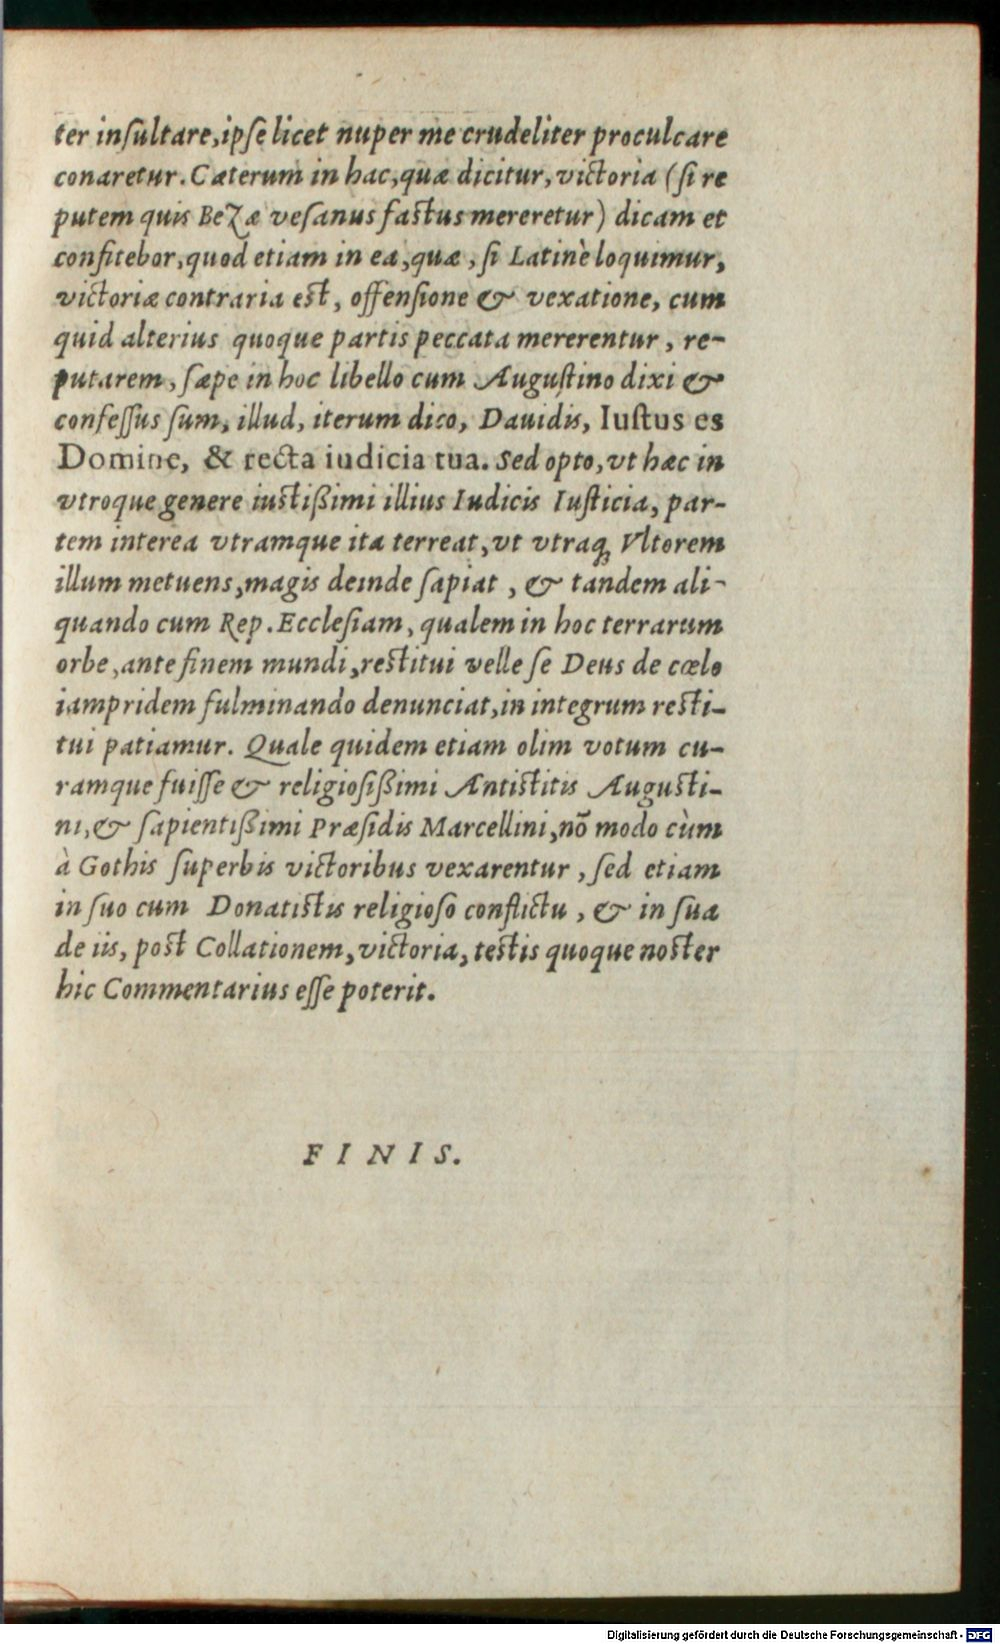 ter inſultare, ipſe licet nuper me crudeliter proculcare
conaretur. Cæterum in hac, quæ dicitur, victoria (ſi re
putem quis Bezæ veſanus faſtus mereretur) dicam et
confitebor, quod etiam in ea, quæ, ſi Latinè loquimur,
victoriæ contraria eſt, offenſione & vexatione, cum
quid alterius quoque partis peccata mererentur, re-
putarem, ſæpe in hoc libello cum Auguſtino dixi &
confeſſus ſum, illud, iterum dico, Dauidis, Iuſtus es
Domine, & recta iudicia tua. Sed opto, vt hæc in
vtroque genere iuſtißimi illius Iudicis Iuſticia, par-
tem interea vtramque ita terreat, vt vtraq; Vltorem
illum metuens, magis deinde ſapiat, & tandem ali-
quando cum Rep. Eccleſiam, qualem in hoc terrarum
orbe, ante finem mundi, reſtitui velle ſe Deus de cœlo
iampridem fulminando denunciat, in integrum reſti-
tui patiamur. Quale quidem etiam olim votum cu-
ramque fuiſſe & religioſißimi Antiſtitis Auguſti-
ni, & ſapientißimi Præſidis Marcellini, nõ modo cùm
à Gothis ſuperbis victoribus vexarentur, ſed etiam
in ſuo cum Donatiſtis religioſo conflictu, & in ſua
de iis, poſt Collationem, victoria, teſtis quoque noſter
hic Commentarius eſſe poterit.
FINIS.
Digitalisierung gefördert durch die Deutsche Forschungsgemeinschaft - DFG